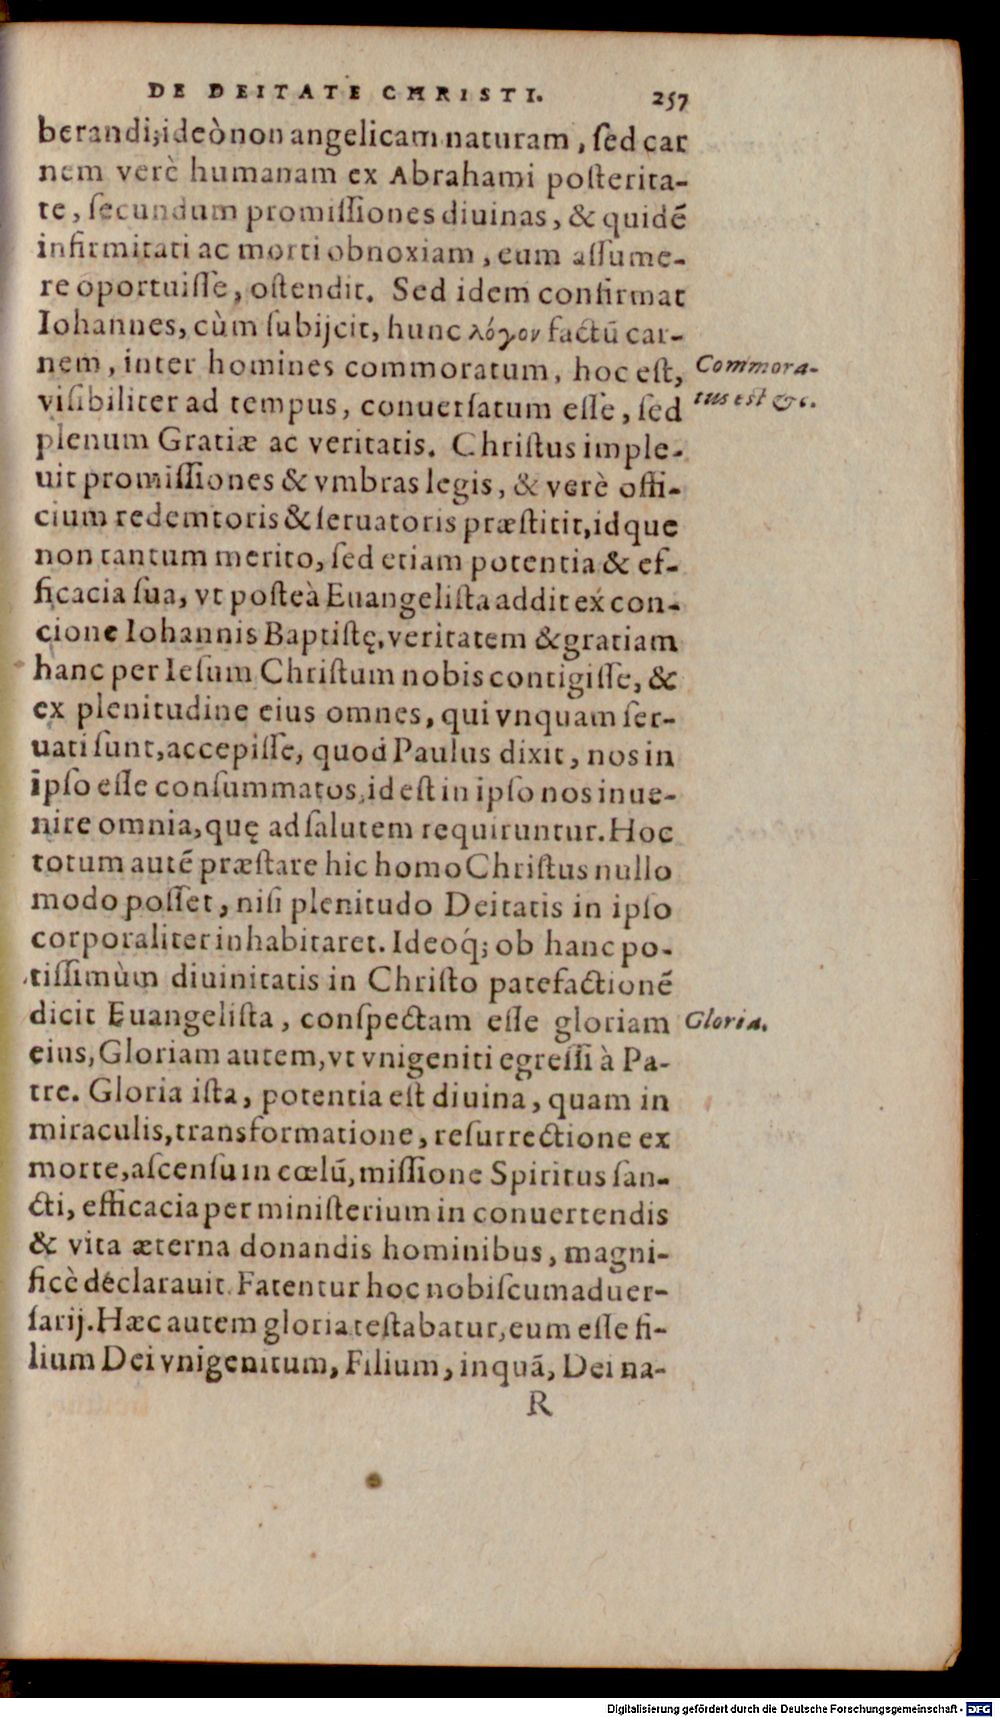 DE DEITATE CHRISTI. 257
berandi;ideò non angelicam naturam, ſed car
nem verè humanam ex Abrahami poſterita-
te, ſecundum promiſſiones diuinas, & quidē
infirmitati ac morti obnoxiam, eum aſſume-
re oportuiſſe, oſtendit. Sed idem confirmat
Iohannes, cùm ſubijcit, hunc λόγον factū car-
nem, inter homines commoratum, hoc eſt,
Commora-
viſibiliter ad tempus, conuerſatum eſſe, ſed
tus est &c.
plenum Gratiæ ac veritatis. Chriſtus imple-
uit promiſſiones & vmbras legis, & verè offi-
cium redemtoris & ſeruatoris præſtitit, idque
non tantum merito, ſed etiam potentia & ef-
ficacia ſua, vt poſteà Euangeliſta addit ex con-
cione Iohannis Baptiſtę, veritatem & gratiam
hanc per Ieſum Chriſtum nobis contigiſſe, &
ex plenitudine eius omnes, qui vnquam ſer-
uati ſunt, accepiſſe, quod Paulus dixit, nos in
ipſo eſſe conſummatos, id eſt in ipſo nos inue-
nire omnia, quę ad ſalutem requiruntur. Hoc
totum autē præſtare hic homo Chriſtus nullo
modo poſſet, niſi plenitudo Deitatis in ipſo
corporaliter inhabitaret. Ideoq́; ob hanc po-
tiſſimùm diuinitatis in Chriſto patefactionē
dicit Euangeliſta, conſpectam eſſe gloriam
Gloria.
eius, Gloriam autem, vt vnigeniti egreſſi à Pa-
tre. Gloria iſta, potentia eſt diuina, quam in
miraculis, transformatione, reſurrectione ex
morte, aſcenſu in cœlū, miſſione Spiritus ſan-
cti, efficacia per miniſterium in conuertendis
& vita æterna donandis hominibus, magni-
ficè declarauit. Fatentur hoc nobiſcum aduer-
ſarij. Hæc autem gloria teſtabatur, eum eſſe fi-
lium Dei vnigenitum, Filium, inquā, Dei na-
R
Digitalisierung gefördert durch die Deutsche Forschungsgemeinschaft - DFG